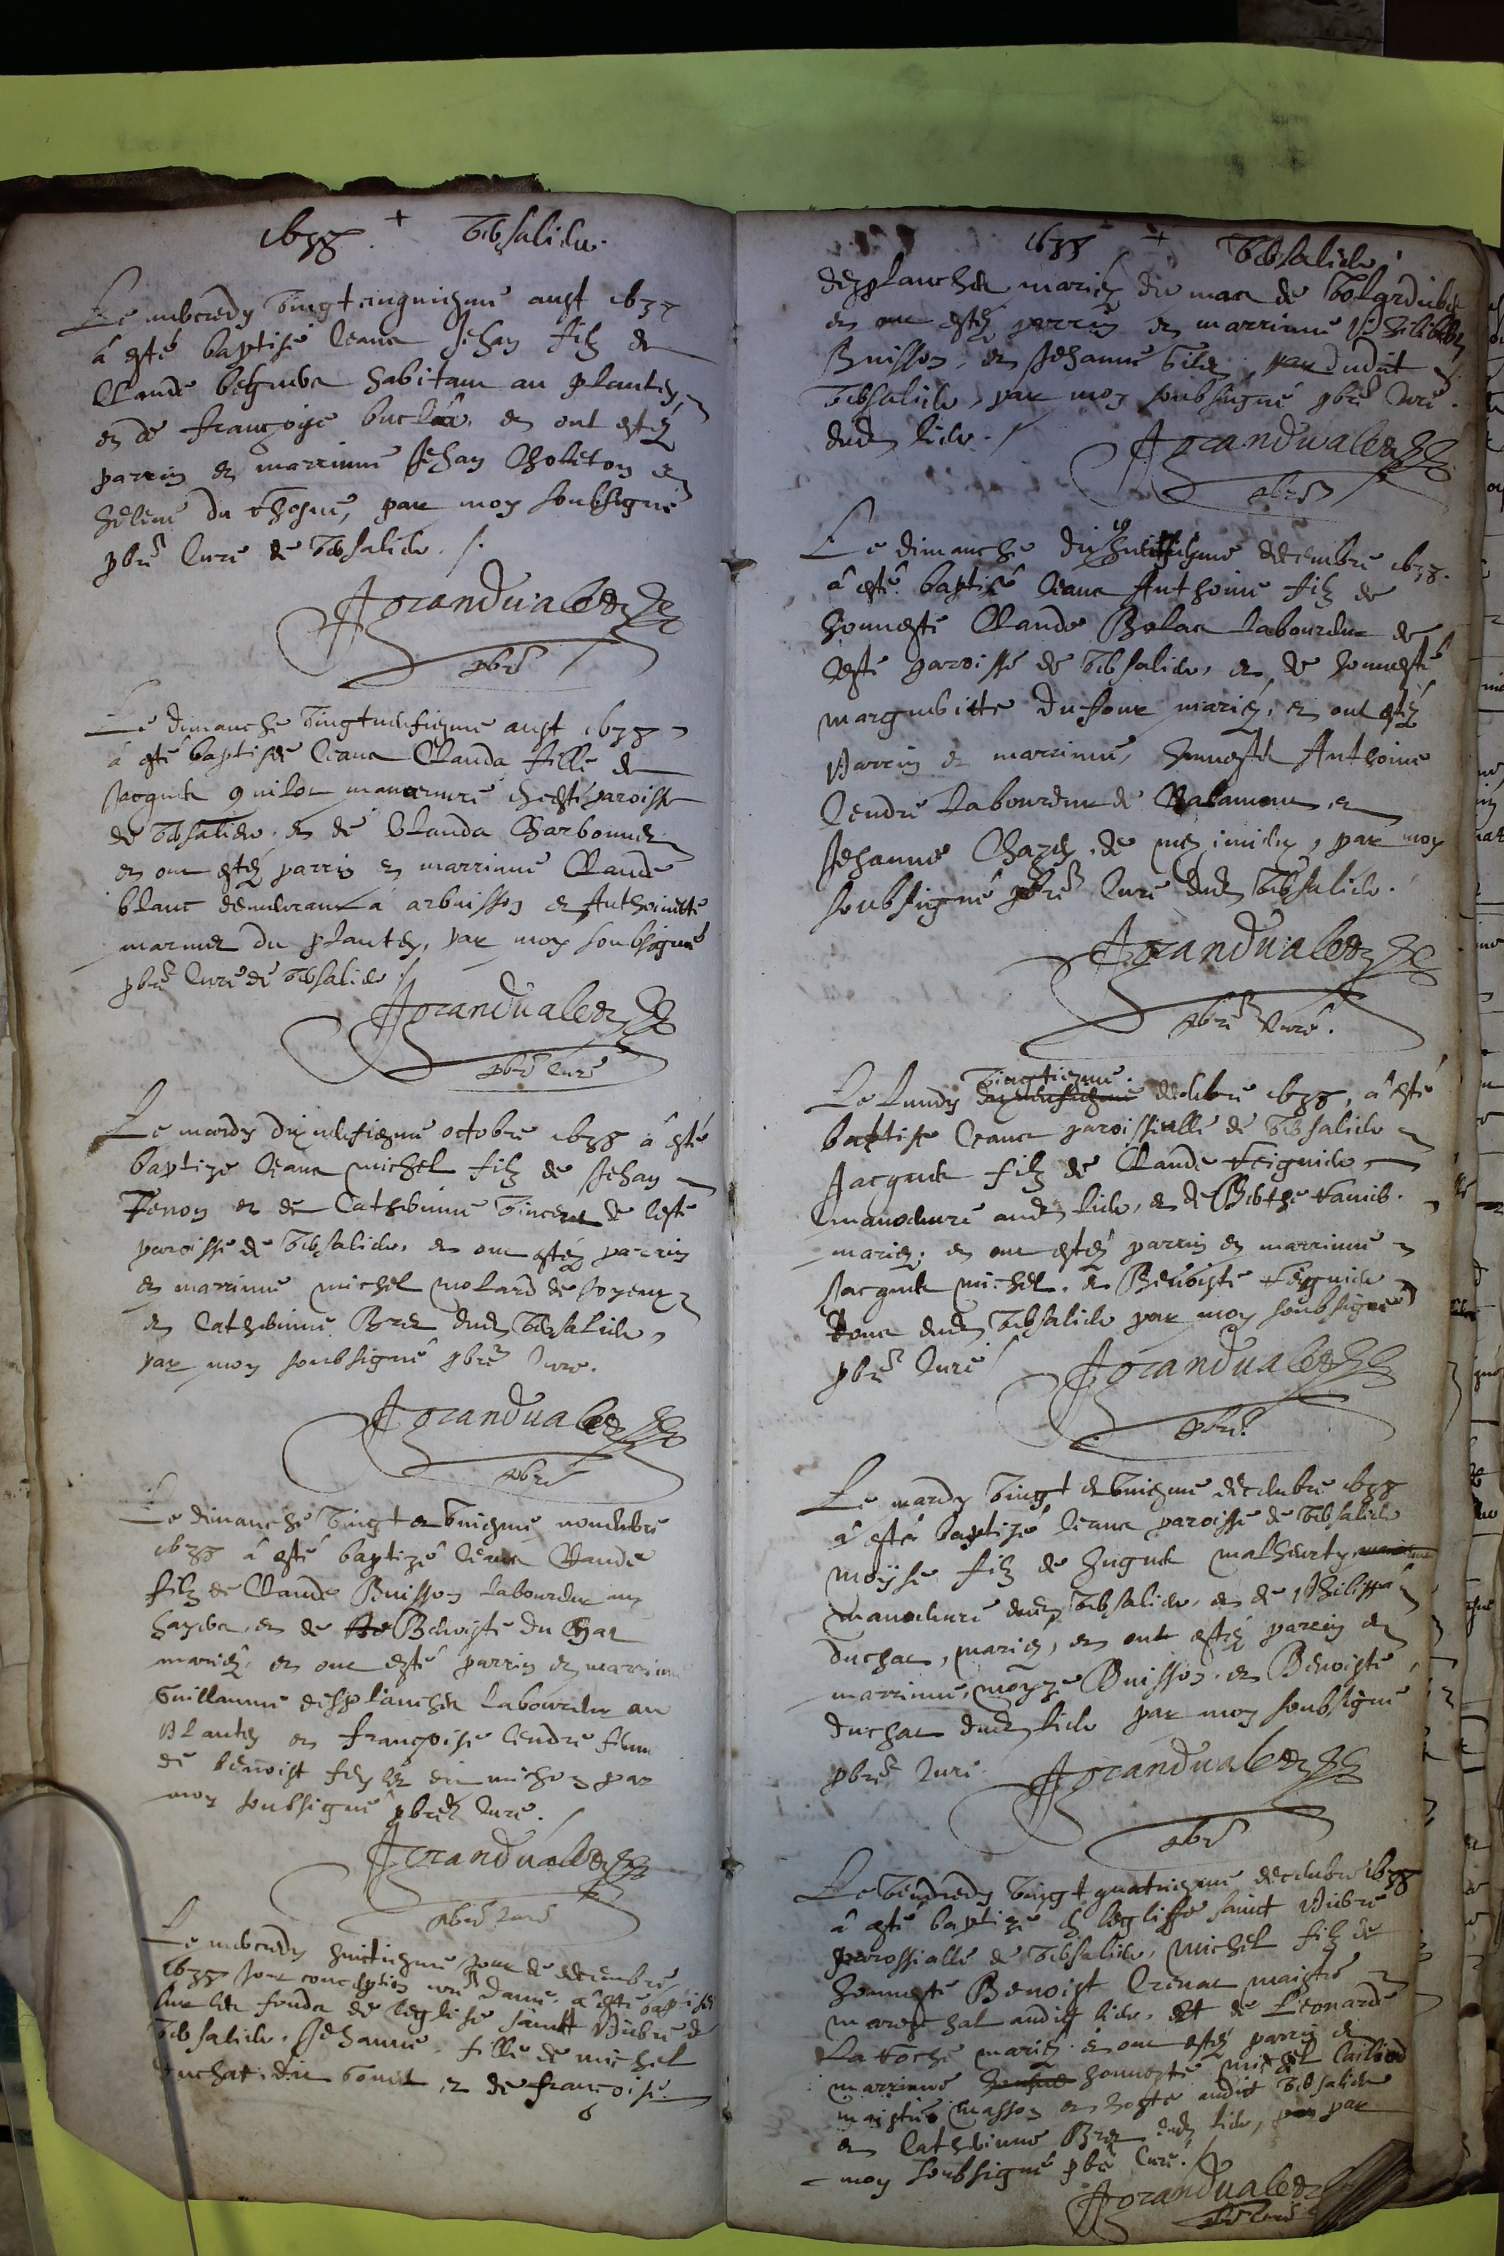 1638 + Versalieu.
Le mercredy vingt cinquiesme aust 1638
a esté baptisé ceans Jehan filz de
Claude habitant au plantey
et de françoise et ont estéz
parrin et marrinne Jehan Choleton et
heleine du par moy soubsigné
pbre Curé de Versalieu ./.
A grandvalet
pbre
Le dimanche vingtneufiesme aust 1638
a esté baptisée ceans Clauda fille de
Jacques manoeuvre paroisse
de Versalieu et de Clauda Charbonnet
et ont estéz parrin et marrinne Claude
blanc demeurant a arbuisson et Anthoinette
du plantey, par moy soubsigné
pbre Curé de Versalieu ./
A grandvalet
pbre Curé
Le mardy dixneufiesme octobre 1638 a esté
baptize ceans michel filz de Jehan
Penon et de Catherinne Vincent de ceste
paroisse de Versalieu, et ont estéz parrin
et marrinne michel molard de Joyeux
et Catherinne Bret dudt Versalieu,
par moy soubsigné pbre Curé.
A grandvalet
pbre
Le dimanche vingt et uniesme novembre
1638 a esté baptizé ceans Claude
filz de Claude Buisson laboureur
et de Benoiste du Chat
mariez, et ont esté parrin et marrinne
Guillaume desplanches laboureur au
Plantey et françoise Cendre femme
de benoist par
moy soubsigné pbre Curé.
A grandvalet
pbre Curé
Le mercredy huictiesme jour de decembre
1638 jour conception nre dame, a esté baptisée
sur les fondz de leglise sainct Pierre de
Versalieu. Jehanne, fille de michel
duchat dit et de françoise
1638 + Versalieu
desplanches mariez du mas de
et ont estéz parrin et marrinne Philibert
Buisson, et Jehanne dudit
Versalieu, par moy soubsigné pbre Curé
dudt lieu ./
A grandvalet
pbre
Le dimanche decembre 1638.
a esté baptisé ceans Anthoine filz de
honneste Claude laboureur de
ceste paroisse de Versalieu, et de honneste
margueritte dufour mariez, et ont estéz
Parrin et marrinne, honneste Anthoine
Cendre laboureur de Chalamont et
Jehanne de par moy
soubsigné pbre Curé dudt Versalieu.
A grandvalet
pbre Curé.
Le Lundy vingtiesme decebre 1638, a esté
baptisé ceans paroissialle de Versalieu
Jacques filz de Claude
manoeuvre audt lieu, et de Berthe
mariez. et ont estéz parrin et marrinne
Jacques michel. et Benoiste
dudt Versalieu par moy soubsigné
pbre Curé
A grandvalet
pbre
Le mardy vingt et uniesme decembre 1638
a esté baptizé ceans paroisse de Versalieu
moyse filz de hugues
manoeuvre dudt Versalieu, et de Philippa
duchat, mariez, et ont estéz parrin et
marrinne, moyze Buisson, et Benoiste
duchat dudt lieu par moy soubsigné
pbre Curé
A grandvalet
pbre
Le vendredy vingt quatriesme decembre 1638
a esté baptizé en leglisse sainct Pierre
parossialle de Versalieu, michel filz de
honneste Benoist maistre
mareschal audit lieu, et de Leonarde
mariez. et ont estéz parrin et
marrinne honneste michel
maistre masson et hoste audit Versalieu
et Catherinne Bret dudt lieu, par
moy soubsigné pbre Curé.
A grandvalet
pbre Curé